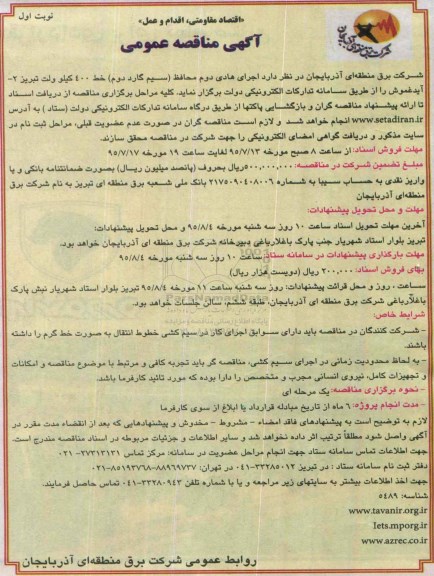 نوبت اول
«اقتصاد مقاومتی، اقدام و عمل»
آگهی مناقصه عمومی
شرکت برق منطقه‌ای آذربایجان
شرکت برق منطقه‌ای آذربایجان در نظر دارد اجرای هادی دوم محافظ (سیم گارد دوم) خط ۴۰۰ کیلو ولت تبریز ۲-
آیدغموش را از طریق سامانه تدارکات الکترونیکی دولت برگزار نماید. کلیه مراحل برگزاری مناقصه از دریافت اسناد
تا ارائه پیشنهاد مناقصه گران و بازگشایی پاکتها از طریق درگاه سامانه تدارکات الکترونیکی دولت (ستاد) به آدرس
www.setadiran.ir انجام خواهد شد و لازم است مناقصه گران در صورت عدم عضویت قبلی، مراحل ثبت نام در
سایت مذکور و دریافت گواهی امضای الکترونیکی را جهت شرکت در مناقصه محقق سازند.
مهلت فروش اسناد: از ساعت ۸ صبح مورخه ۹۵/۷/۱۳ لغایت ساعت ۱۹ مورخه ۹۵/۷/۱۷
مبلغ تضمین شرکت در مناقصه: ۵۰۰,۰۰۰,۰۰۰ریال بحروف (پانصد میلیون ریال) بصورت ضمانتنامه بانکی و یا
واریز نقدی به حساب سیبا به شماره ۲۱۷۵۰۹۰۴۰۸۰۰۶ بانک ملی شعبه برق منطقه ای تبریز به نام شرکت برق
منطقه‌ای آذربایجان
مهلت و محل تحویل پیشنهادات:
آخرین مهلت تحویل اسناد ساعت ۱۰ روز سه شنبه مورخه ۹۵/۸/۴ و محل تحویل پیشنهادات:
تبریز بلوار استاد شهریار جنب پارک باغلارباغی دبیرخانه شرکت برق منطقه ای آذربایجان خواهد بود.
مهلت بارگذاری پیشنهادات در سامانه ستاد: ساعت ۱۰ روز سه شنبه مورخه ۹۵/۸/۴
بهای فروش اسناد: ۲۰۰,۰۰۰ ریال (دویست هزار ریال)
ساعت، روز و محل قرائت پیشنهادات: روز سه شنبه ساعت ۱۱ مورخه ۹۵/۸/۴ تبریز بلوار استاد شهریار نبش پارک
باغلارباغی شرکت برق منطقه ای آذربایجان، طبقه ششم سالن جلسات خواهد بود.
شرایط خاص:
- شرکت کنندگان در مناقصه باید دارای سوابق اجرای کار در سیم کشی خطوط انتقال به صورت خط گرم را داشته
باشند.
- به لحاظ محدودیت زمانی در اجرای سیم کشی، مناقصه گر باید تجربه کافی و مرتبط با موضوع مناقصه و امکانات
و تجهیزات کامل، نیروی انسانی مجرب و متخصص را دارا بوده که مورد تائید کارفرما باشد.
- نحوه برگزاری مناقصه: یک مرحله ای
- مدت انجام پروژه: ۶ ماه از تاریخ مبادله قرارداد یا ابلاغ از سوی کارفرما
لازم به توضیح است به پیشنهادهای فاقد امضاء - مشروط - مخدوش و پیشنهادهایی که بعد از انقضاء مدت مقرر در
آگهی واصل شود مطلقاً ترتیب اثر داده نخواهد شد و سایر اطلاعات و جزئیات مربوطه در اسناد مناقصه مندرج است.
جهت اطلاعات تماس سامانه ستاد جهت انجام مراحل عضویت در سامانه: مرکز تماس ۲۷۳۱۳۱۳۱- ۰۲۱
دفتر ثبت نام سامانه ستاد : در تبریز ۳۳۲۸۵۰۱۲-۰۴۱ در تهران: ۸۸۹۶۹۷۳۷-۸۵۱۹۳۷۶۸-۰۲۱
جهت اخذ اطلاعات بیشتر به سایتهای زیر مراجعه و یا با شماره تلفن ۳۳۲۸۰۹۴۳-۰۴۱ تماس حاصل فرمایند.
شناسه: ۵۴۸۹
www.tavanir.org.ir
Iets.mporg.ir
www.azrec.co.ir
روابط عمومی شرکت برق منطقه‌ای آذربایجان